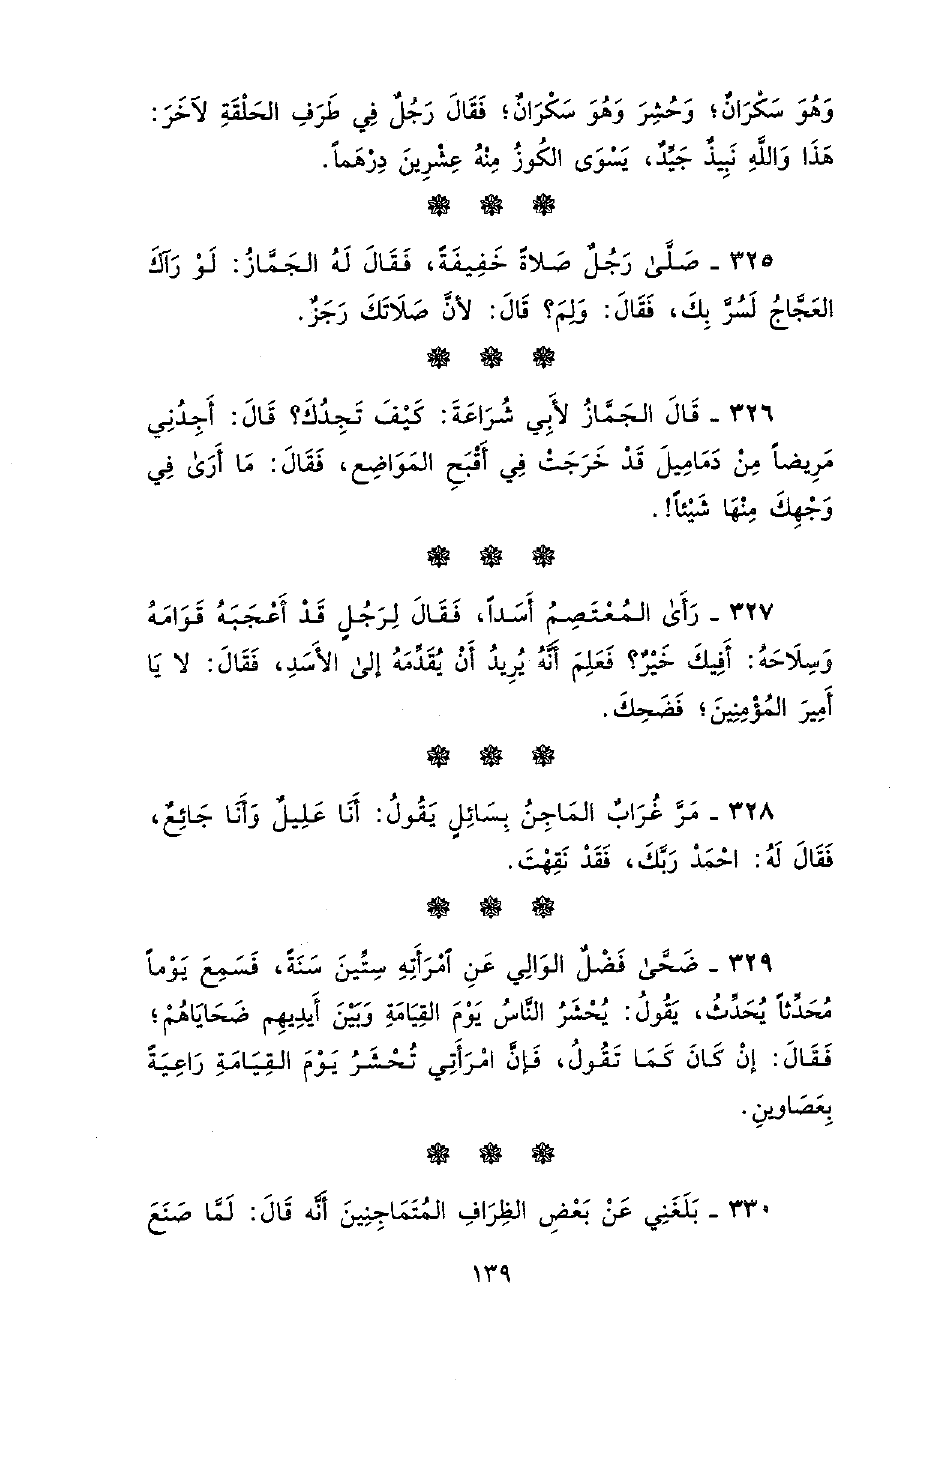 وَهُوَ سَكْرَانٌ؛ وَحُشِرَ وَهُوَ سَكْرَانٌ؛ فَقَالَ رَجُلٌ فِي طَرَفِ الحَلْقَةِ لآخَرَ:
هَذَا وَاللَّهِ نَبِيذٌ جَيِّدٌ، يَسْوَى الكُوزُ مِنْهُ عِشْرِينَ دِرْهَماً.
٣٢٥ ـ صَلَّىٰ رَجُلٌ صَلاةً خَفِيفَةً، فَقَالَ لَهُ الجَمَّازُ: لَوْ رَآكَ
العَجَّاجُ لَسُرَّ بِكَ، فَقَالَ: وَلِمَ؟ قَالَ: لأَنَّ صَلَاتَكَ رَجَزٌ.
٣٢٦ ـ قَالَ الجَمَّازُ لأَبِي شُرَاعَةَ: كَيْفَ تَجِدُكَ؟ قَالَ: أَجِدُنِي
مَرِيضاً مِنْ دَمَامِيلَ قَدْ خَرَجَتْ فِي أَقْبَحِ المَوَاضِعِ، فَقَالَ: مَا أَرَىٰ فِي
وَجْهِكَ مِنْهَا شَيْئاً!.
٣٢٧ ـ رَأَىٰ المُعْتَصِمُ أَسَداً، فَقَالَ لِرَجُلٍ قَدْ أَعْجَبَهُ قَوَامَهُ
وَسِلَاحَهُ: أَفِيكَ خَيْرٌ؟ فَعَلِمَ أَنَّهُ يُرِيدُ أَنْ يُقَدِّمَهُ إلىٰ الأَسَدِ، فَقَالَ: لا يَا
أَمِيرَ المُؤْمِنِينَ؛ فَضَحِكَ.
٣٢٨ ـ مَرَّ غُرَابُ المَاجِنُ بِسَائِلٍ يَقُولُ: أَنَا عَلِيلٌ وَأَنَا جَائِعٌ،
فَقَالَ لَهُ: احْمَدْ رَبَّكَ، فَقَدْ نَقِهْتَ.
٣٢٩ ـ ضَحَّىٰ فَضْلٌ الوَالِي عَنِ ٱمْرَأَتِهِ سِتِّينَ سَنَةً، فَسَمِعَ يَوْماً
مُحَدِّثاً يُحَدِّثُ، يَقُولُ: يُحْشَرُ النَّاسُ يَوْمَ القِيَامَةِ وَبَيْنَ أَيدِيهِم ضَحَايَاهُمْ؛
فَقَالَ: إنْ كَانَ كَمَا تَقُولُ، فَإنَّ امْرَأَتِي تُحْشَرُ يَوْمَ القِيَامَةِ رَاعِيَةً
بِعَصَاوينِ.
٣٣٠ ـ بَلَغَنِي عَنْ بَعْضِ الظِرَافِ المُتَمَاجِنِينَ أَنَّه قَالَ: لَمَّا صَنَعَ
١٣٩